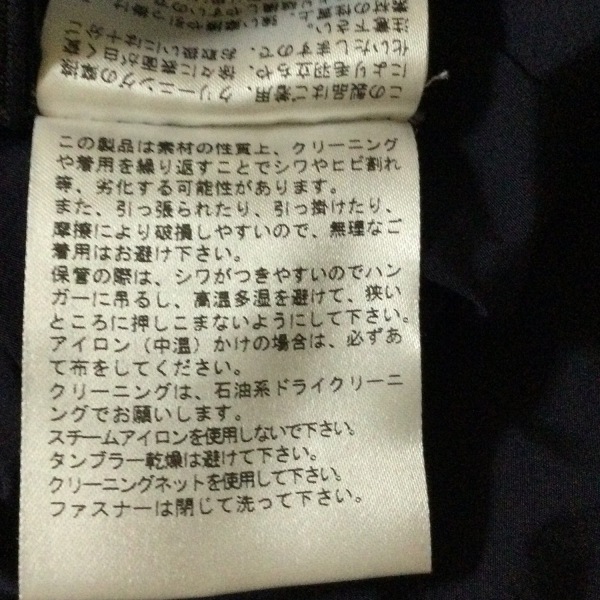 この製品はご着用、クリーニングの摩擦
により毛羽立ちや、徐々に表面が白く変
化いたしますので、お取扱いには十分ご
注意下さい。
素材の性質上、強い摩擦や引っ掛け
この製品は素材の性質上、クリーニング
や着用を繰り返すことでシワやヒビ割れ
等、劣化する可能性があります。
また、引っ張られたり、引っ掛けたり、
摩擦により破損しやすいので、無理なご
着用はお避け下さい。
保管の際は、シワがつきやすいのでハン
ガーに吊るし、高温多湿を避けて、狭い
ところに押しこまないようにして下さい。
アイロン（中温）かけの場合は、必ずあ
て布をしてください。
クリーニングは、石油系ドライクリーニ
ングでお願いします。
スチームアイロンを使用しないで下さい。
タンブラー乾燥は避けて下さい。
クリーニングネットを使用して下さい。
ファスナーは閉じて洗って下さい。